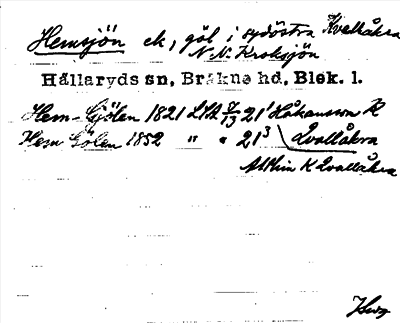 Hemsjön ek, göl i sydöstra Kvallåkra
N. N. Kroksjön
Hällaryds sn, Bräkne hd, Blek. l.
Hem-Gjölen 1821 LSA 7/13 21¹ Håkansson K
Hem Gölen 1852 " " 21³ Qvallåkra
K Qvallåkra